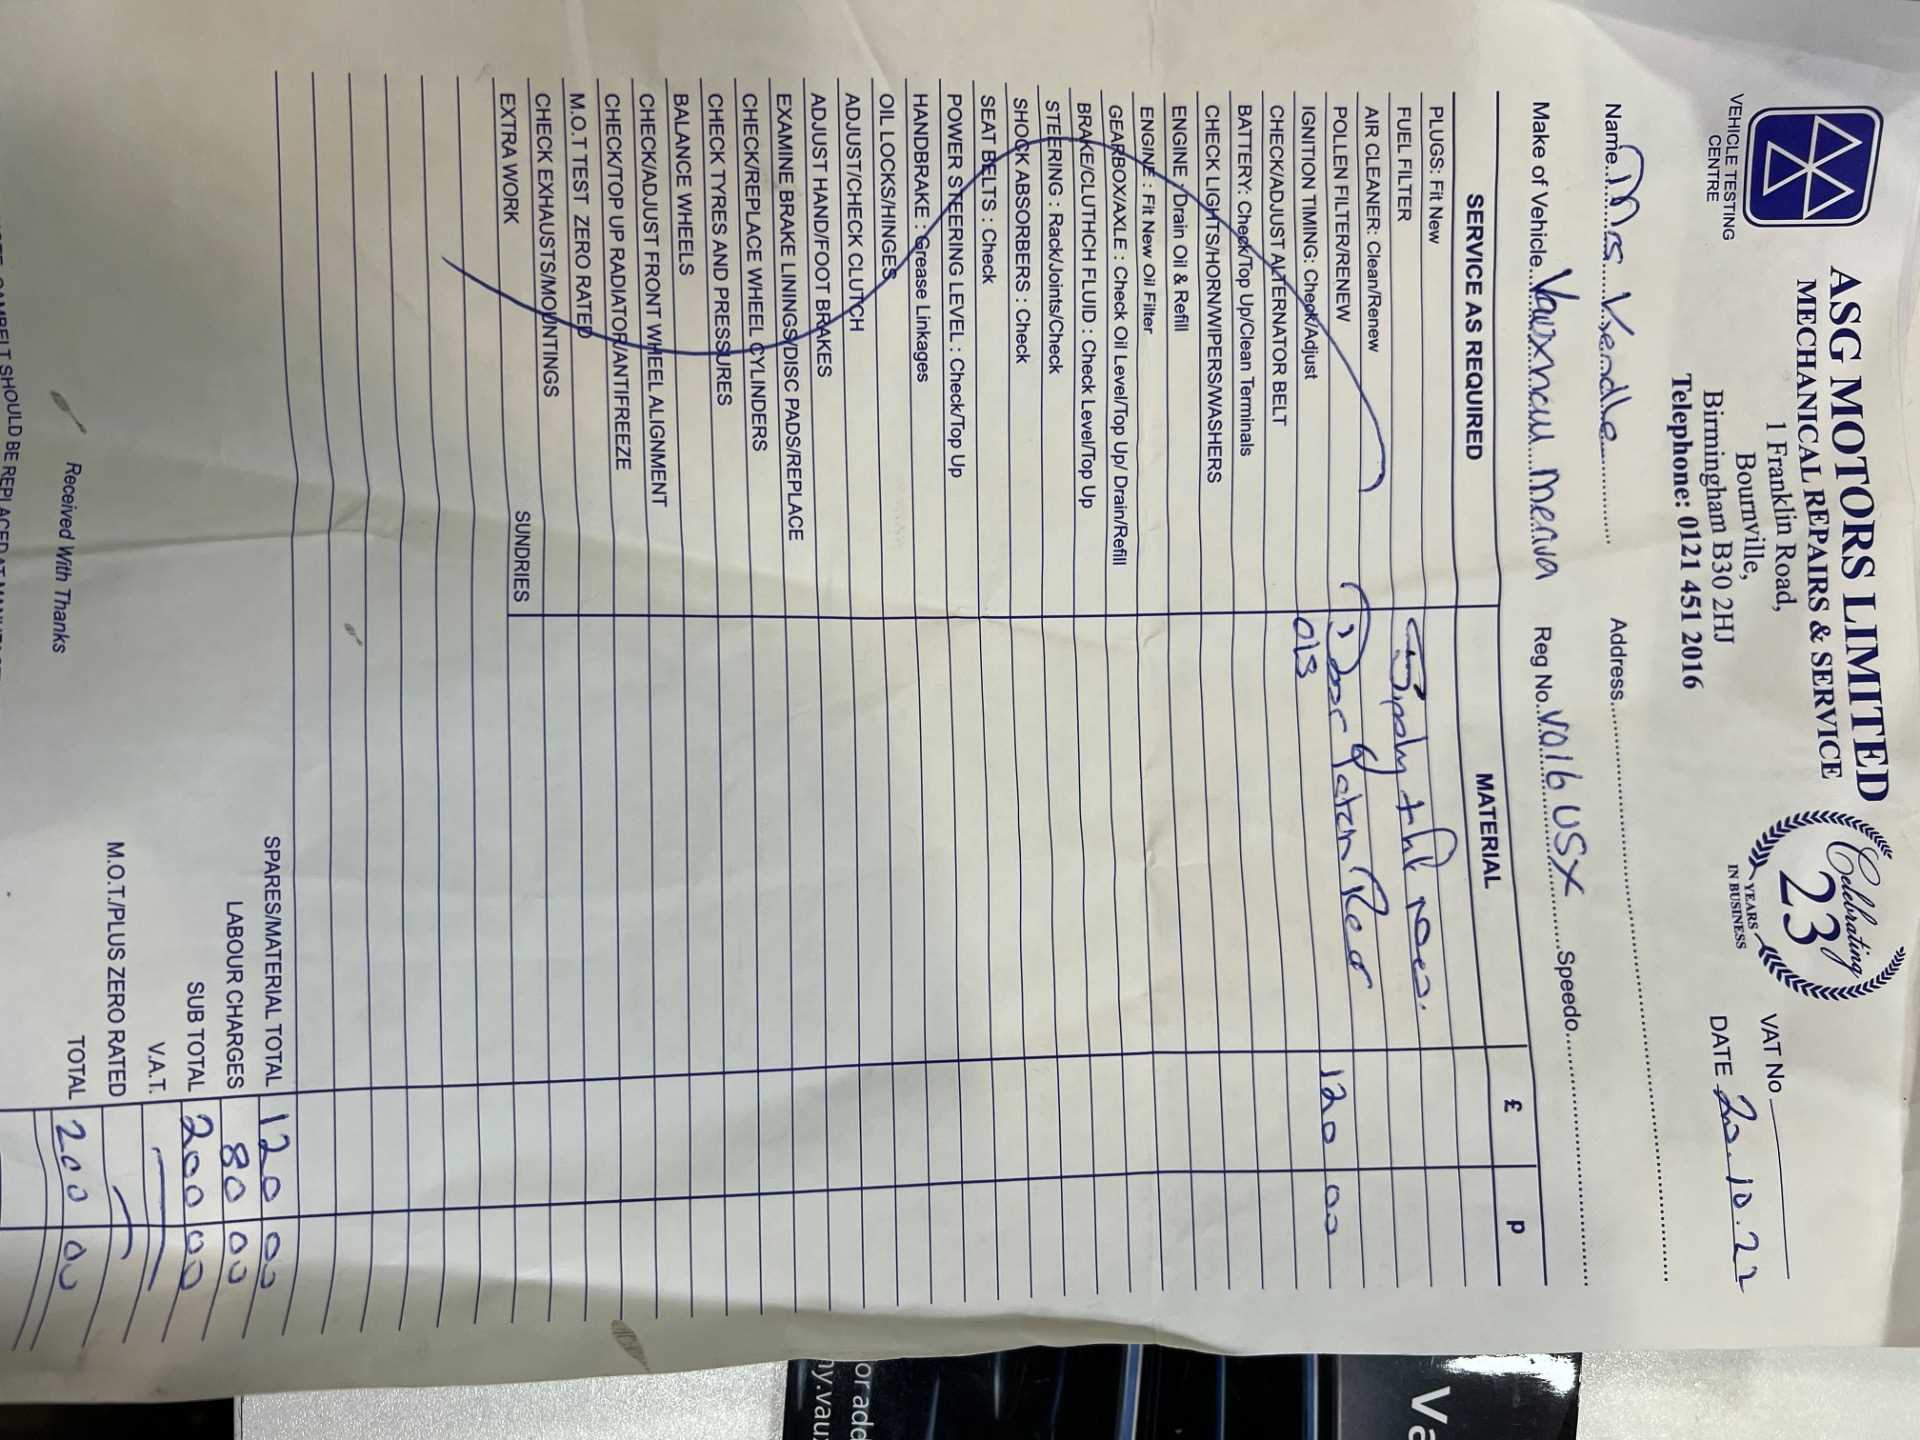 ASG MOTORS LIMITED
MECHANICAL REPAIRS & SERVICE
VEHICLE TESTING
CENTRE
1 Franklin Road,
Bournville,
Birmingham B30 2HJ
Telephone: 0121 451 2016
Celebrating
23
YEARS
IN BUSINESS
VAT No
DATE 20.10.22
Name Mrs Address
Make of Vehicle Vauxhall Meriva Reg No. VO16 USX Speedo
SERVICE AS REQUIRED MATERIAL £ p
PLUGS: Fit New
FUEL FILTER Supply + fit
AIR CLEANER: Clean/Renew
POLLEN FILTER/RENEW Door Rear 120 00
IGNITION TIMING: Check/Adjust O/S
CHECK/ADJUST ALTERNATOR BELT
BATTERY: Check/Top Up/Clean Terminals
CHECK LIGHTS/HORN/WIPERS/WASHERS
ENGINE : Drain Oil & Refill
ENGINE : Fit New Oil Filter
GEARBOX/AXLE : Check Oil Level/Top Up/ Drain/Refill
BRAKE/CLUTHCH FLUID : Check Level/Top Up
STEERING : Rack/Joints/Check
SHOCK ABSORBERS : Check
SEAT BELTS : Check
POWER STEERING LEVEL : Check/Top Up
HANDBRAKE : Grease Linkages
OIL LOCKS/HINGES
ADJUST/CHECK CLUTCH
ADJUST HAND/FOOT BRAKES
EXAMINE BRAKE LININGS/DISC PADS/REPLACE
CHECK/REPLACE WHEEL CYLINDERS
CHECK TYRES AND PRESSURES
BALANCE WHEELS
CHECK/ADJUST FRONT WHEEL ALIGNMENT
CHECK/TOP UP RADIATOR/ANTIFREEZE
M.O.T TEST ZERO RATED
CHECK EXHAUSTS/MOUNTINGS
EXTRA WORK SUNDRIES
SPARES/MATERIAL TOTAL 120 00
LABOUR CHARGES 80 00
SUB TOTAL 200 00
V.A.T.
M.O.T./PLUS ZERO RATED
Received With Thanks TOTAL 200 00
SHOULD BE REPLACED AT